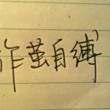 作茧自缚